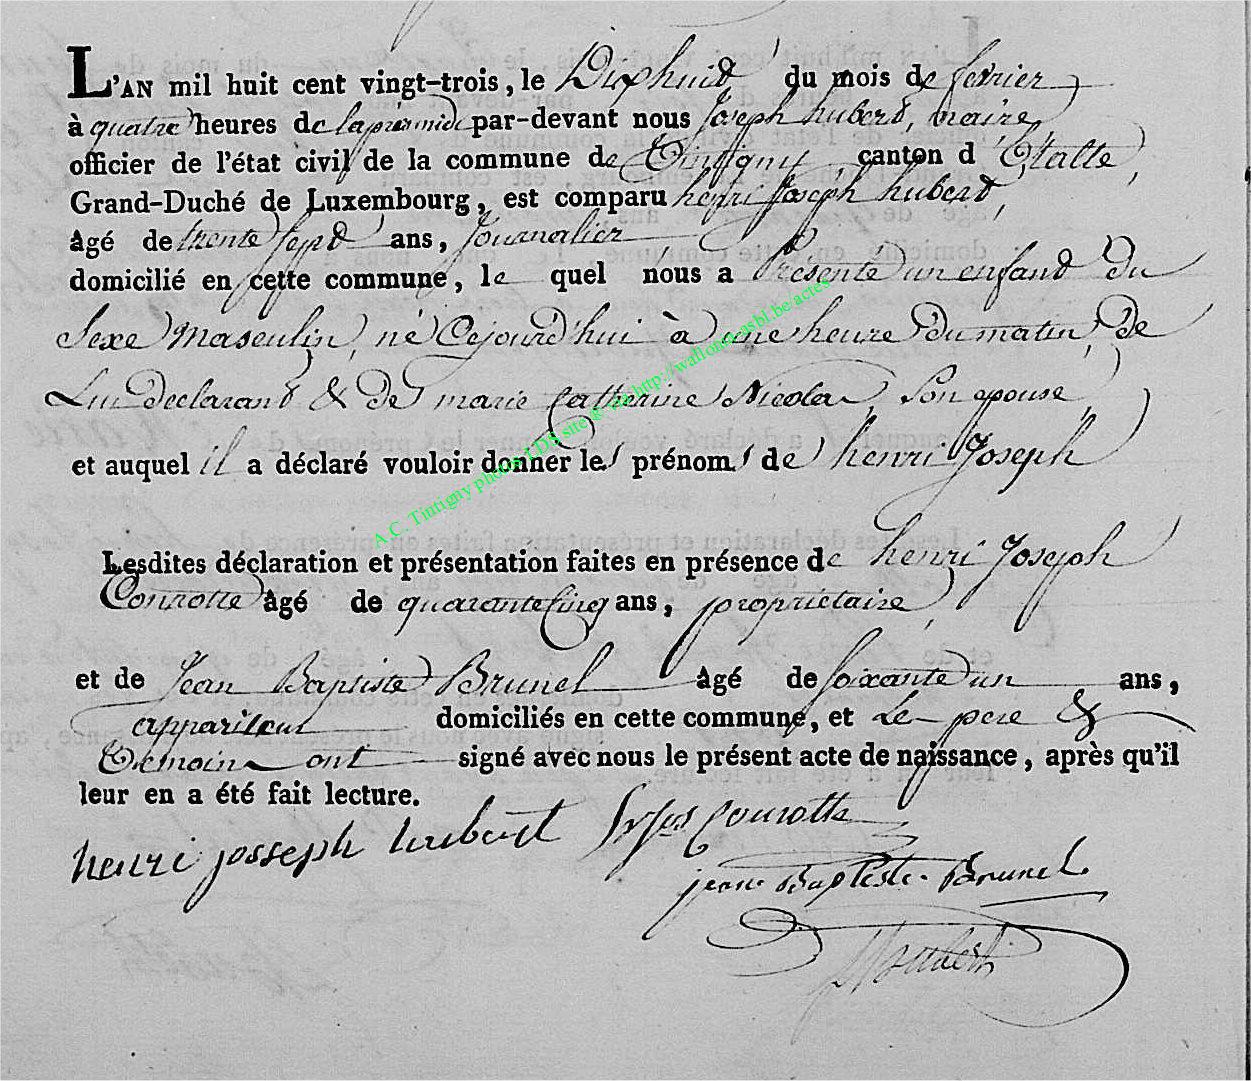 L'AN mil huit cent vingt-trois, le Dixhuit du mois de fevrier
à quatre heures de lapremidi par-devant nous Joseph hubert, maire,
officier de l'état civil de la commune de Tintigny canton d'Etalle,
Grand-Duché de Luxembourg, est comparu henri Joseph hubert,
âgé de trente Sept ans, Journalier
domicilié en cette commune, le quel nous a Presenté un enfant Du
Sexe Masculin, né Cejourd'hui à une heure Du matin, De
Lui declarant & De marie Catherine Nicolas, Son epouse,
et auquel il a déclaré vouloir donner les prénoms de henri Joseph
Lesdites déclaration et présentation faites en présence de henri Joseph
Conrotte âgé de quarante Cinq ans, proprietaire,
et de Jean Baptiste Brunel âgé de Soixante un ans,
appariteur domiciliés en cette commune, et Le pere &
Temoins ont signé avec nous le présent acte de naissance, après qu'il
leur en a été fait lecture.
henri josseph hubert Conrotte
jean Baptiste Brunel
J Houbert
A.C. Tintigny photos LDS site & via http://wallonia-asbl.be/actes